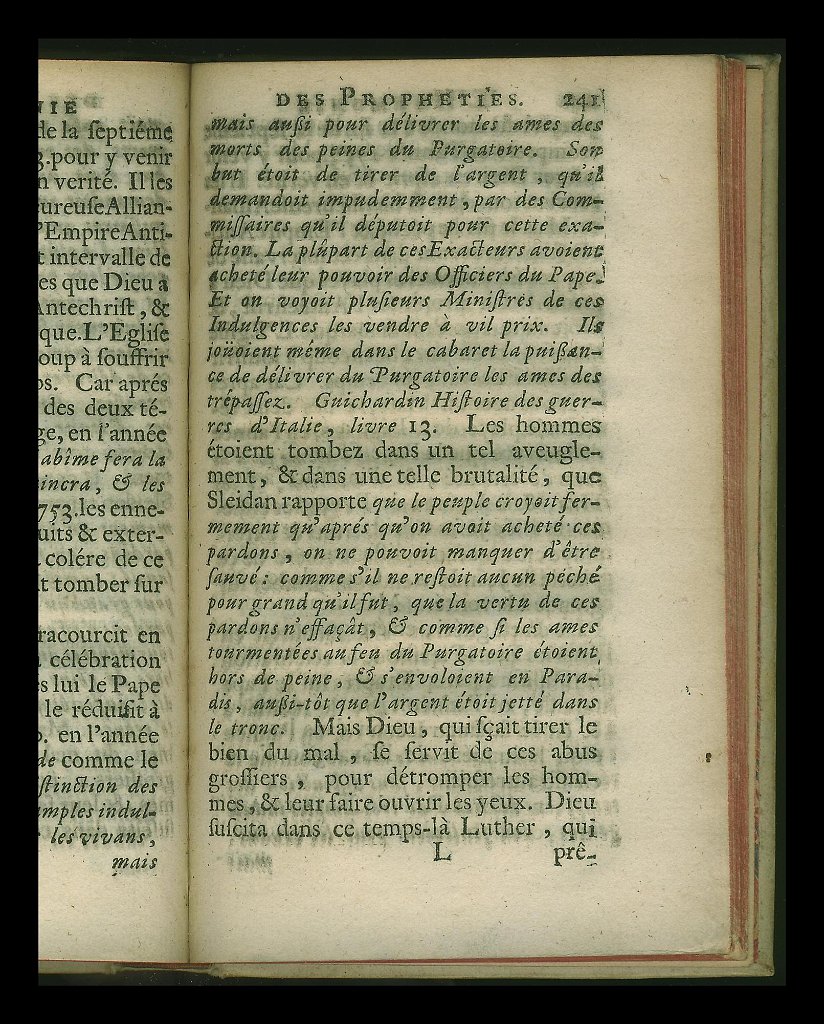 NIE
de la ſeptiéme
3.pour y venir
n verité. Il les
eureuſeAllian-
'EmpireAnti-
t intervalle de
es que Dieu a
Antechriſt, &
que.L'Egliſe
oup à ſouffrir
os. Car aprés
des deux té-
ge, en l'année
abîme fera la
incra, & les
753.les enne-
uits & exter-
colére de ce
t tomber ſur
racourcit en
célébration
s lui le Pape
le réduiſit à
o. en l'année
de comme le
ſtinction des
imples indul-
les vivans,
mais
DES PROPHETIES. 241
mais außi pour délivrer les ames des
morts des peines du Purgatoire. Son
but étoit de tirer de l'argent, qu'il
demandoit impudemment, par des Com-
miſſaires qu'il députoit pour cette exa-
ction. La plúpart de ces Exacteurs avoient
acheté leur pouvoir des Officiers du Pape.
Et on voyoit pluſieurs Miniſtres de ces
Indulgences les vendre à vil prix. Ils
joüoient méme dans le cabaret la puißan-
ce de délivrer du Purgatoire les ames des
trépaſſez. Guichardin Hiſtoire des guer-
res d'Italie, livre 13. Les hommes
étoient tombez dans un tel aveugle-
ment, & dans une telle brutalité, que
Sleidan rapporte que le peuple croyoit fer-
mement qu'aprés qu'on avoit acheté ces
pardons, on ne pouvoit manquer d'être
ſauvé: comme s'il ne reſtoit aucun péché
pour grand qu'il fut, que la vertu de ces
pardons n'effaçât, & comme ſi les ames
tourmentées au feu du Purgatoire étoient
hors de peine, & s'envoloient en Para-
dis, außi-tôt que l'argent étoit jetté dans
le tronc. Mais Dieu, qui ſçait tirer le
bien du mal, ſe ſervit de ces abus
groſſiers, pour détromper les hom-
mes, & leur faire ouvrir les yeux. Dieu
ſuſcita dans ce temps-là Luther, qui
L prê-